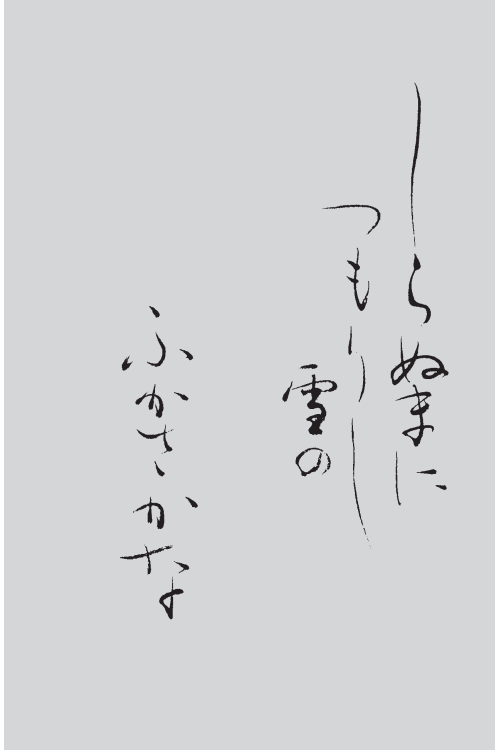 しらぬまに
つもりし
雪の
ふかさかな